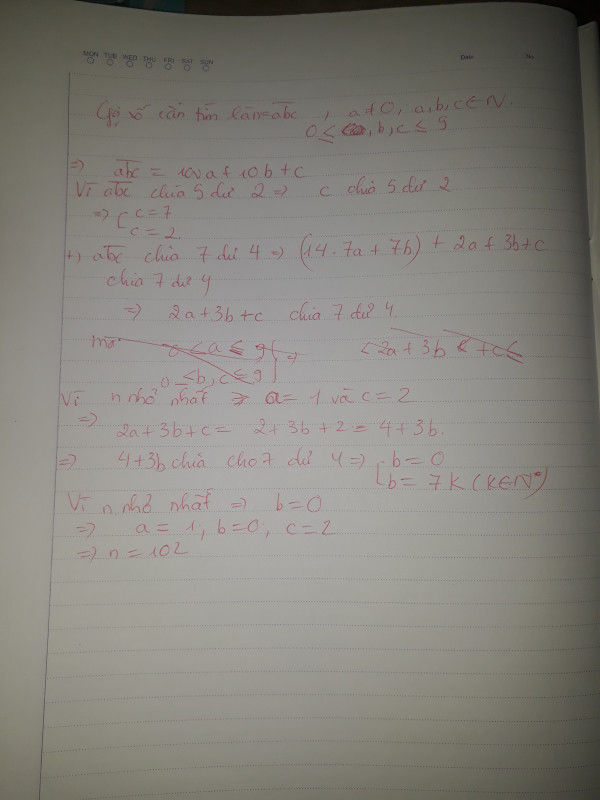 MON TUE WED THU FRI SAT SUN
Date No.
Gọi số cần tìm là n = abc , a ≠ 0, a, b, c ∈ N.
0 ≤ , b, c ≤ 9
=> abc = 100a + 10b + c
Vì abc chia 5 dư 2 => c chia 5 dư 2
=> [ c = 7
c = 2
+) abc chia 7 dư 4 => (14.7a + 7b) + 2a + 3b + c
chia 7 dư 4
=> 2a + 3b + c chia 7 dư 4.
Mà 0 < a ≤ 9 } => < 2a + 3b < + c ≤
0 ≤ b, c ≤ 9
Vì n nhỏ nhất => a = 1 và c = 2
=> 2a + 3b + c = 2 + 3b + 2 = 4 + 3b.
=> 4 + 3b chia cho 7 dư 4 => [ b = 0
b = 7K (K ∈ N*)
Vì n nhỏ nhất => b = 0
=> a = 1, b = 0, c = 2
=> n = 102